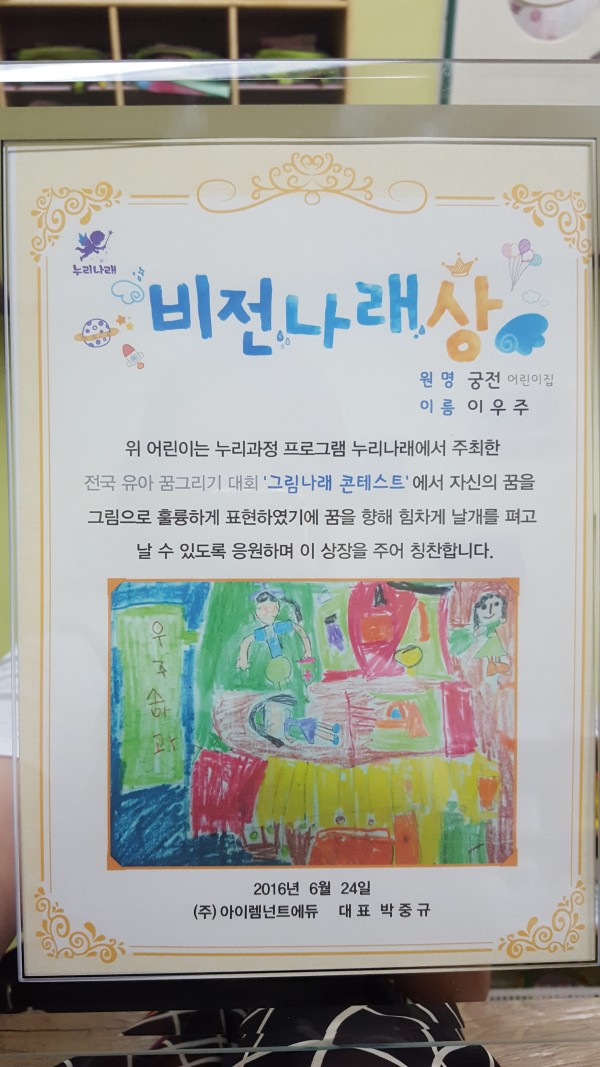 누리나래
비전나래상
원 명 궁전 어린이집
이 름 이 우 주
위 어린이는 누리과정 프로그램 누리나래에서 주최한
전국 유아 꿈그리기 대회 '그림나래 콘테스트'에서 자신의 꿈을
그림으로 훌륭하게 표현하였기에 꿈을 향해 힘차게 날개를 펴고
날 수 있도록 응원하며 이 상장을 주어 칭찬합니다.
우
주
과
2016년 6월 24일
(주)아이렘넌트에듀 대 표 박 중 규